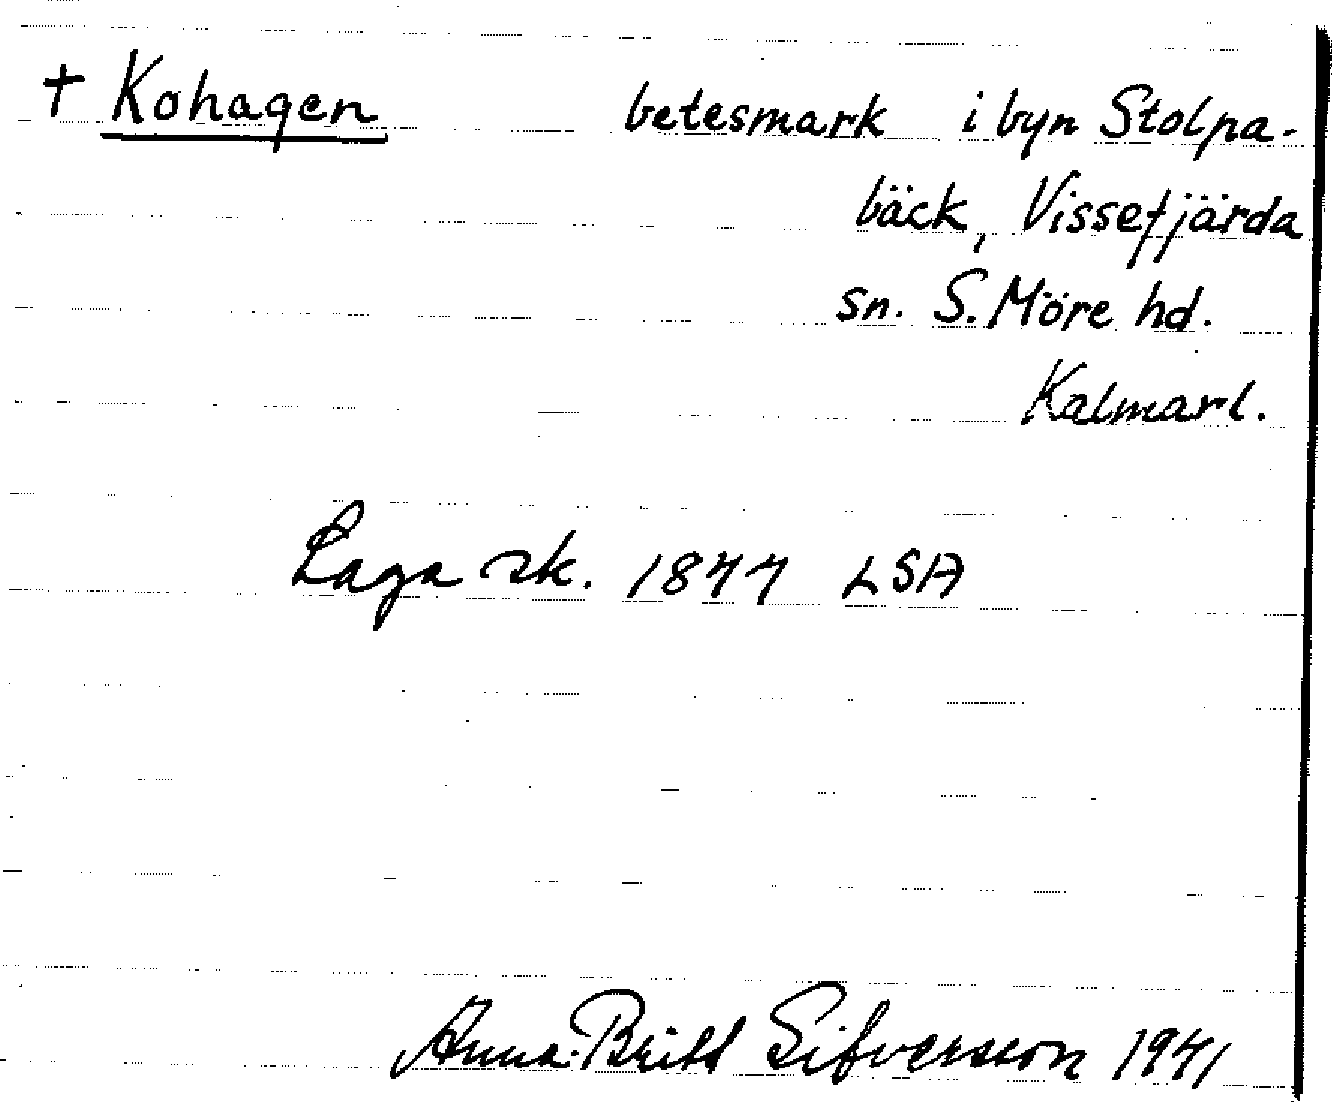 † Kohagen betesmark i byn Stolpa-
bäck, Vissefjärda
sn. S. Möre hd.
Kalmarl.
Laga sk. 1844 LSA
Anna-Britt Sifversson 1941